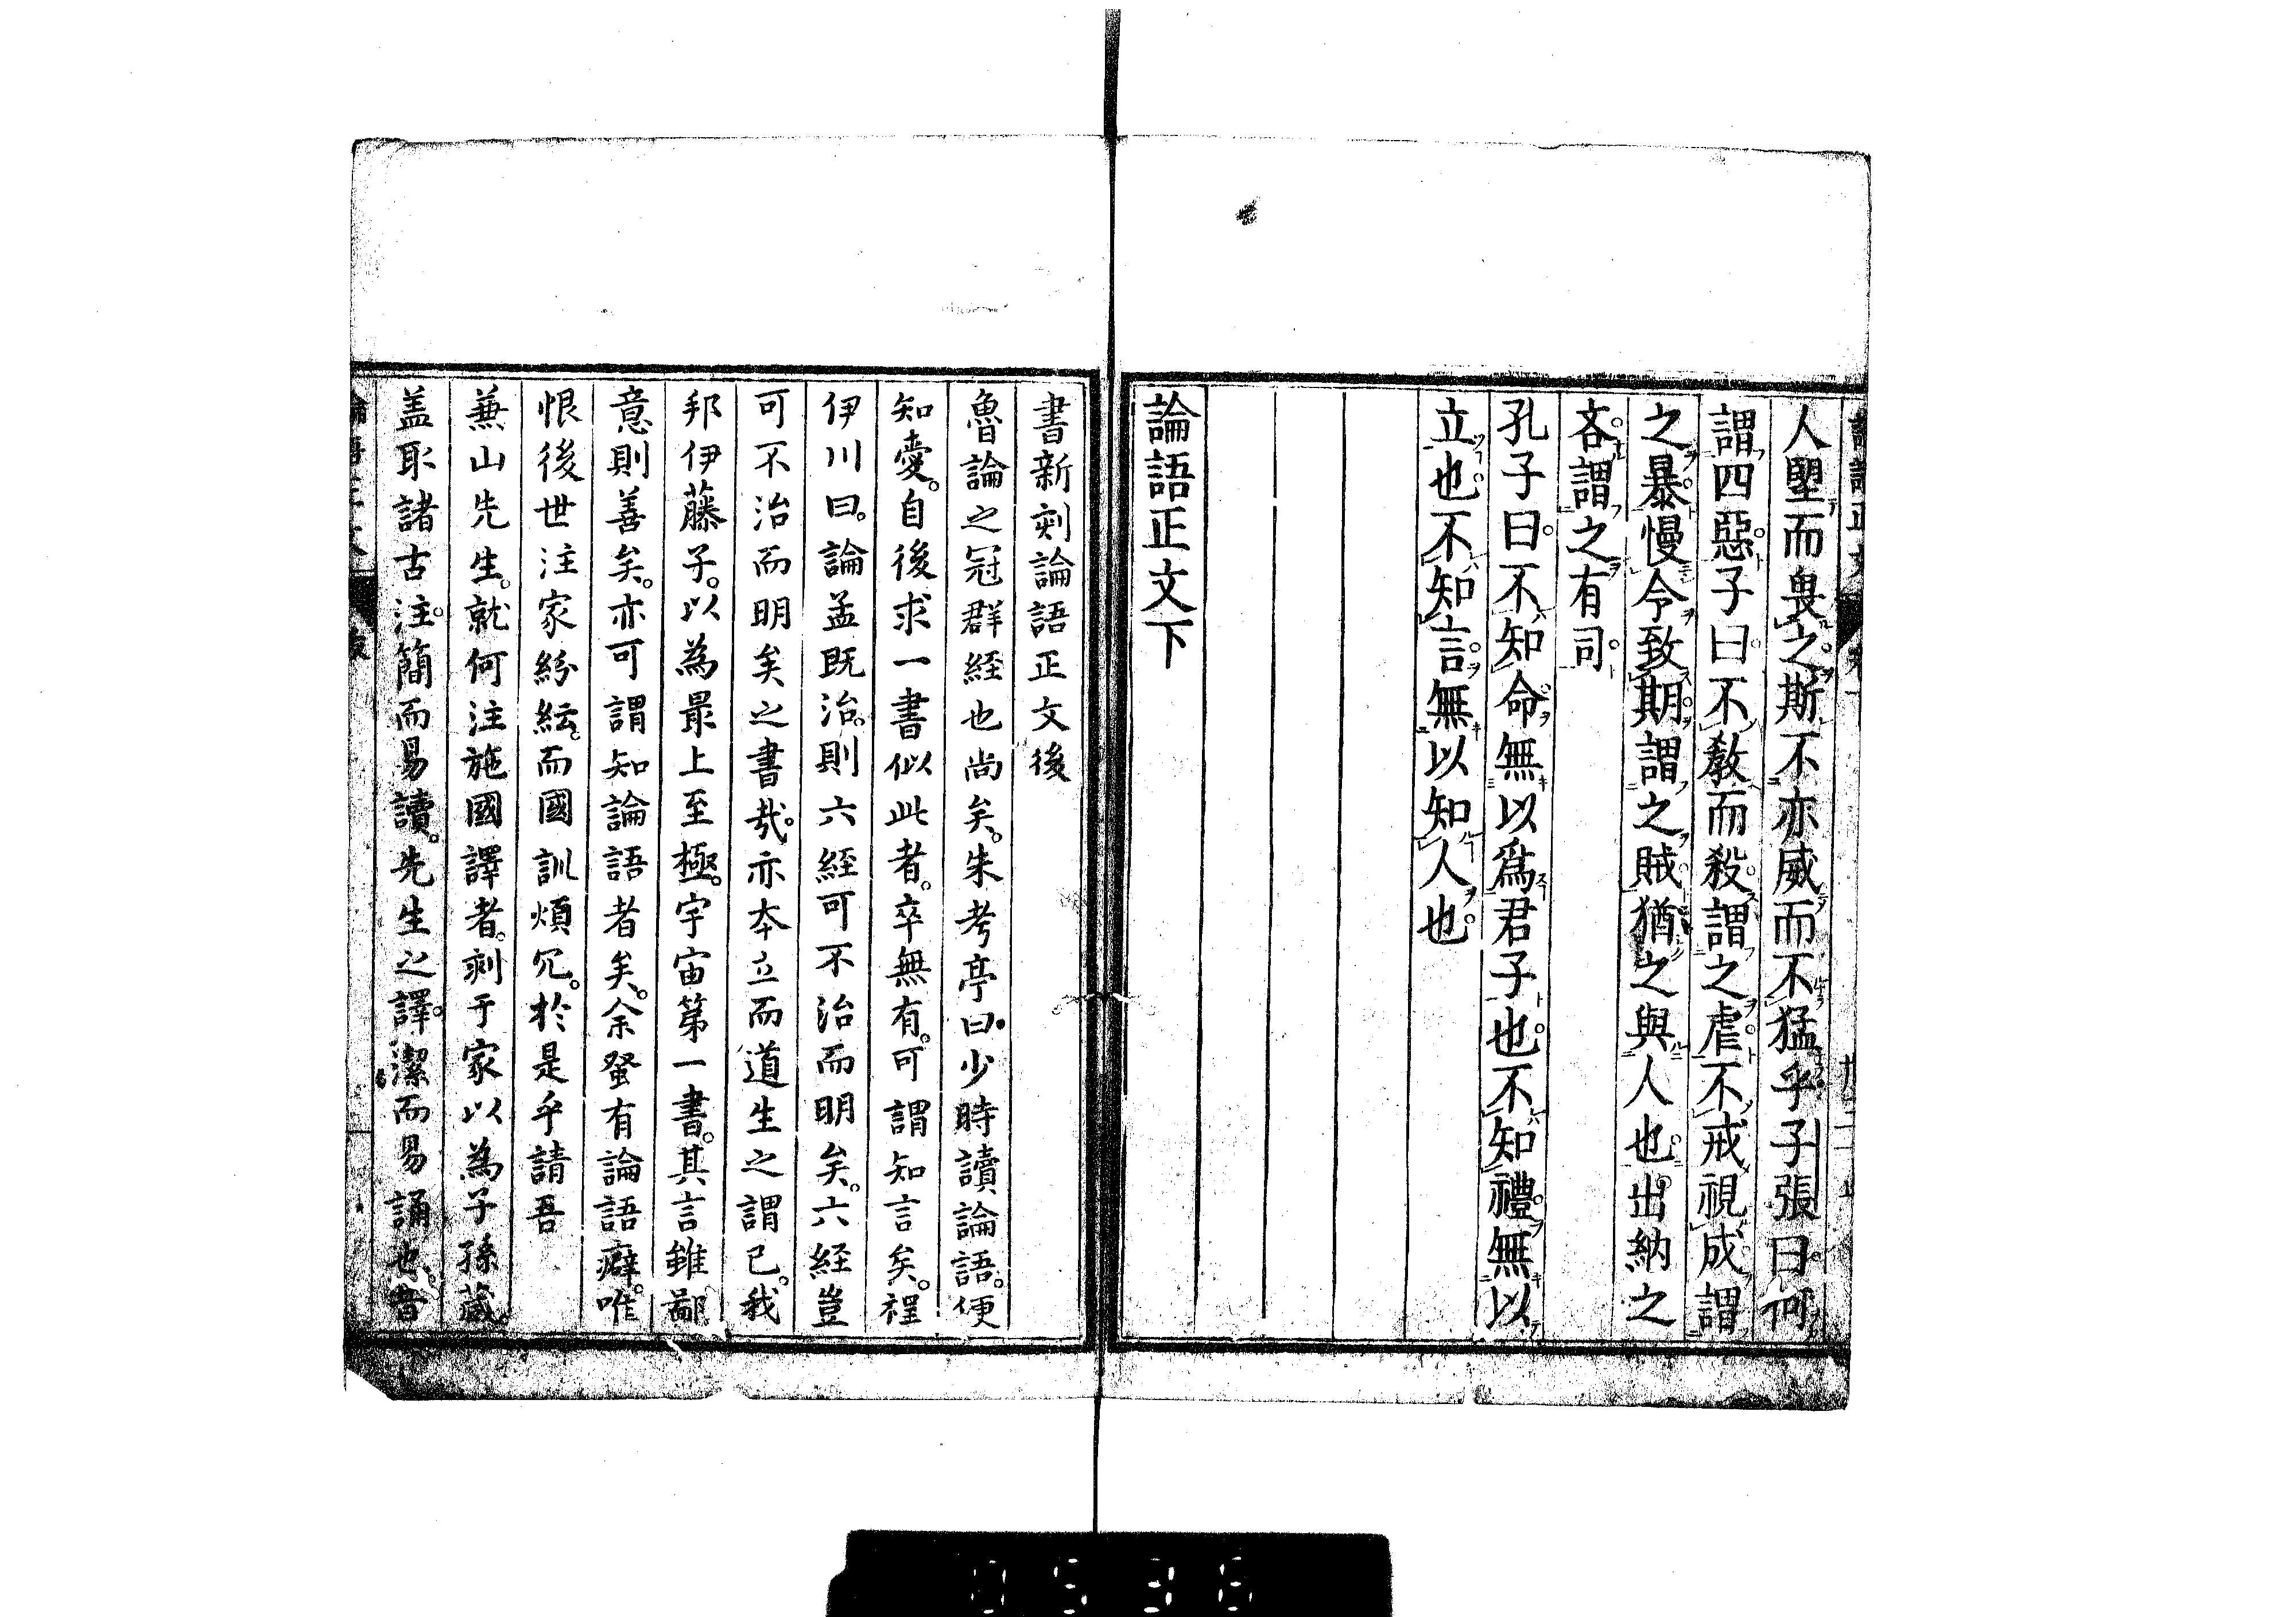 人朢而畏之斯不亦威而不猛乎子張曰何
謂四惡子曰不教而殺謂之虐不戒視成謂
之暴慢令致期謂之賊猶之與人也出納之
吝謂之有司
孔子曰不知命無以爲君子也不知禮無以
立也不知言無以知人也
論語正文下
書新刻論語正文後
魯論之冠群経也尚矣。朱考亭曰。少時讀論語。便
知愛。自後求一書似此者。卒無有。可謂知言矣。程
伊川曰。論孟既治。則六経可不治而明矣。六経豈
可不治而明矣之書哉。亦本立而道生之謂已。我
邦伊藤子。以為最上至極。宇宙第一書。其言雖鄙。
意則善矣。亦可謂知論語者矣。余蚤有論語癖。唯
恨後世注家紛紜。而國訓煩冗。於是乎請吾
蕪山先生。就何注施國譯者。刻于家以為子孫藏。
盖取諸古注。簡而易讀。先生之譯。潔而易誦也。昔
0536